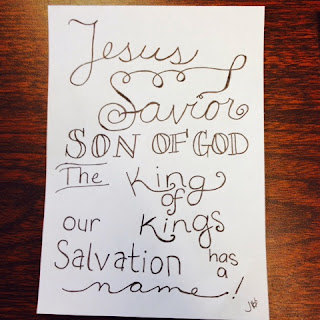 Jesus
Savior
SON OF GOD
The King
of
our Kings
Salvation has
a
name!